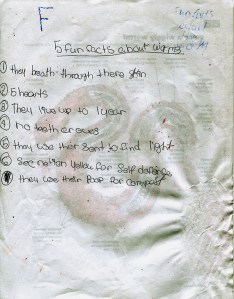 F
5 fun facts about worms
① they breath through there skin
② 5 hearts
③ They live up to 1 year
④ no teeth or eyes
⑤ they use their to find light
⑥ yellow for self defence
⑦ they use their Poop for compost